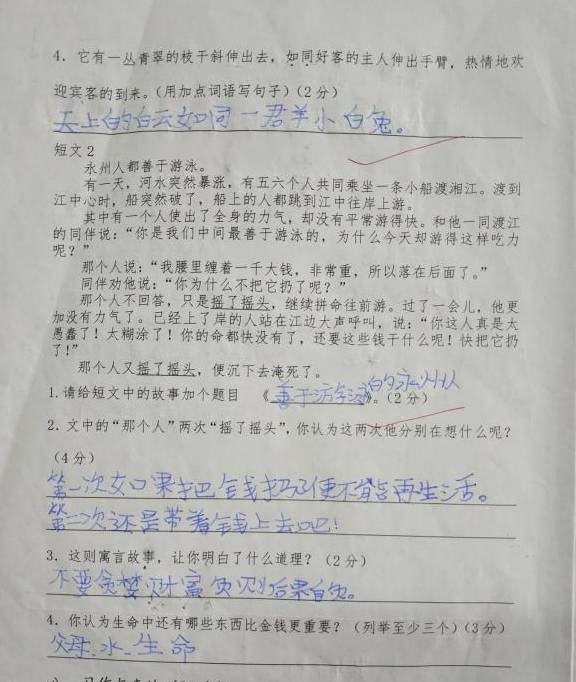 4．它有一丛青翠的枝干斜伸出去，如同好客的主人伸出手臂，热情地欢
迎宾客的到来。（用加点词语写句子）（2分）
天上的白云如同一君羊小白兔。
短文2
永州人都善于游泳。
有一天，河水突然暴涨，有五六个人共同乘坐一条小船渡湘江。渡到
江中心时，船突然破了，船上的人都跳到江中往岸上游。
其中有一个人使出了全身的力气，却没有平常游得快。和他一同渡江
的同伴说：“你是我们中间最善于游泳的，为什么今天却游得这样吃力
呢？”
那个人说：“我腰里缠着一千大钱，非常重，所以落在后面了。”
同伴劝他说：“你为什么不把它扔了呢？”
那个人不回答，只是摇了摇头，继续拼命往前游。过了一会儿，他更
加没有力气了。已经上了岸的人站在江边大声呼叫，说：“你这人真是太
愚蠢了！太糊涂了！你的命都快没有了，还要这些钱干什么呢！快把它扔
了！”
那个人又摇了摇头，便沉下去淹死了。
1.请给短文中的故事加个题目 《善于游泳的永州人》。（2分）
2．文中的“那个人”两次“摇了摇头”，你认为这两次他分别在想什么呢？
（4分）
第一次如果把钱扔了便不能再生活。
第二次还是带着钱上去吧！
3．这则寓言故事，让你明白了什么道理？（2分）
不要贪婪财富否则后果自负。
4．你认为生命中还有哪些东西比金钱更重要？（列举至少三个）（3分）
父母、水、生命